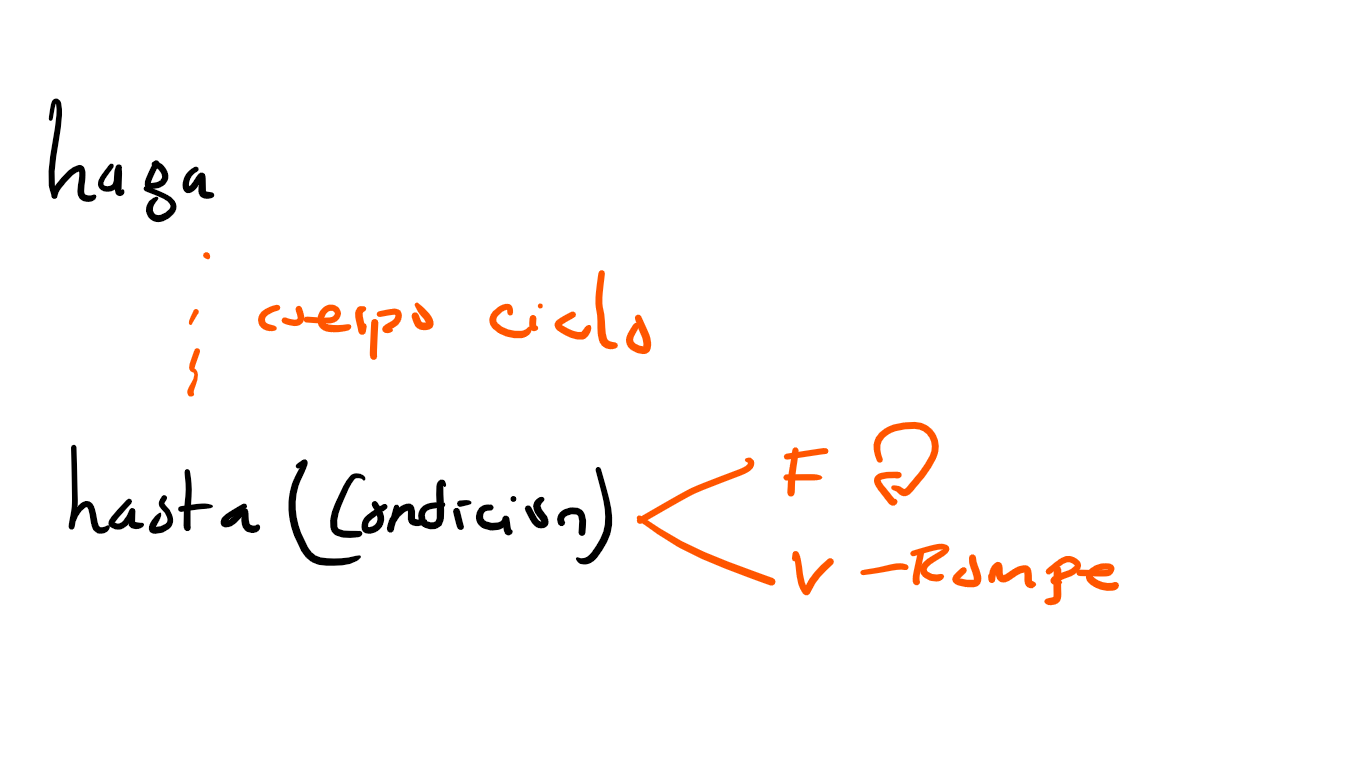 haga
cuerpo ciclo
hasta (Condición)
F
V - Rompe